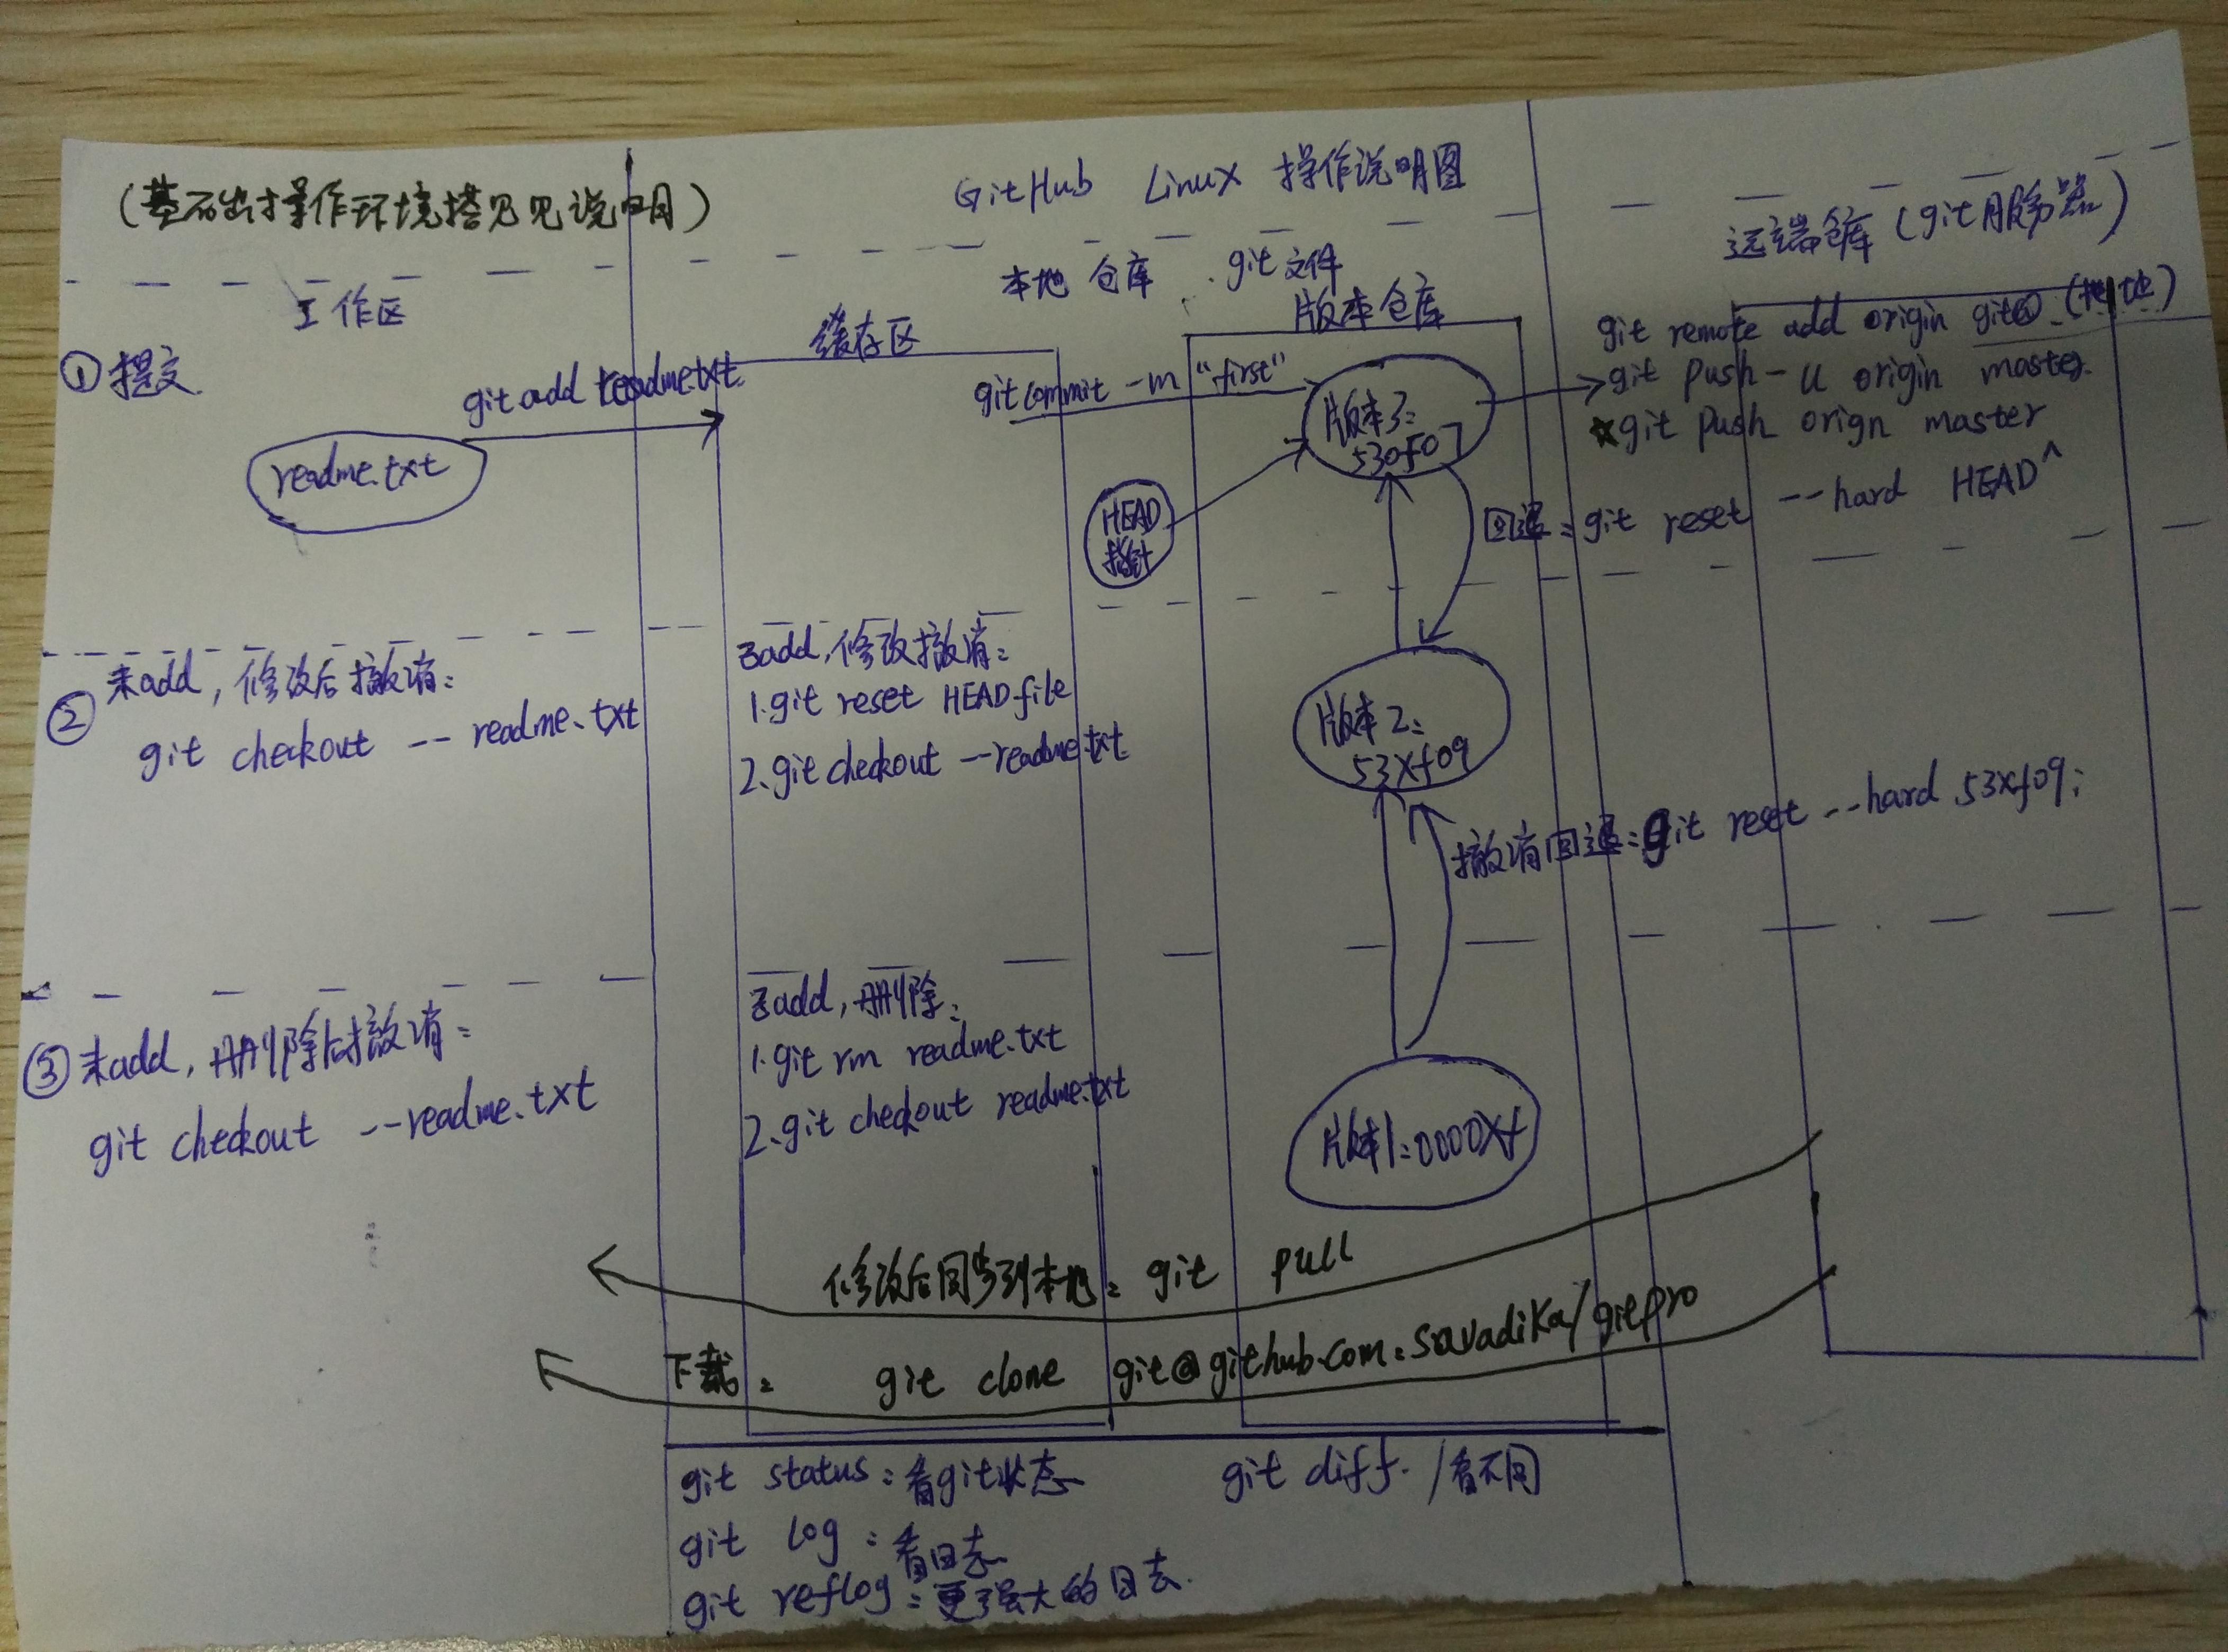 (基础操作环境搭见见说明)
GitHub Linux 操作说明图
远端仓库(git服务器)
本地仓库 .git文件
工作区
缓存区
版本仓库
①提交
git add readme.txt
readme.txt
git commit -m "first"
版本3:
530f07
HEAD
指针
git remote add origin git@ (地址)
git push -u origin master
☆git push orign master
回退: git reset --hard HEAD^
② 未add, 修改后撤消:
git checkout -- readme.txt
已add, 修改撤消:
1.git reset HEAD file
2.git checkout --readme.txt
版本2:
53Xf09
撤消回退: git reset --hard 53xf09;
③ 未add, 删除后撤消:
git checkout --readme.txt
已add, 删除:
1.git rm readme.txt
2.git checkout readme.txt
版本1:0000Xf
修改后同步到本地: git pull
下载: git clone git@github.com:savadika/gitpro
git status: 看git状态
git diff. /看不同
git log: 看日志
git reflog: 更强大的日志.